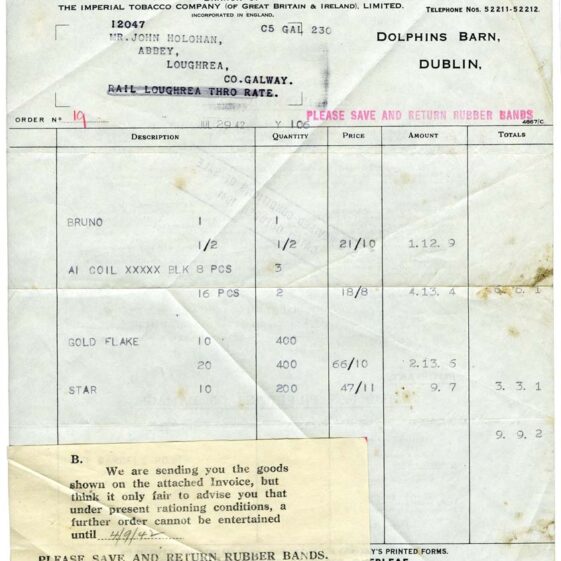 THE IMPERIAL TOBACCO COMPANY (OF GREAT BRITAIN & IRELAND), LIMITED.
INCORPORATED IN ENGLAND.
TELEPHONE NOS. 52211-52212.
12047 C5 GAL 230
MR. JOHN HOLOHAN,
ABBEY,
LOUGHREA,
CO. GALWAY.
RAIL LOUGHREA THRO RATE.
DOLPHINS BARN,
DUBLIN,
ORDER Nº 19
JUL 29 42 Y 106
PLEASE SAVE AND RETURN RUBBER BANDS
4667/C.
DESCRIPTION QUANTITY PRICE AMOUNT TOTALS
BRUNO 1 1
1/2 1/2 21/10 1.12. 9
A1 COIL XXXXX BLK 8 PCS 3
16 PCS 2 18/8 4.13. 4 6. 6. 1
GOLD FLAKE 10 400
20 400 66/10 2.13. 6
STAR 10 200 47/11 9. 7 3. 3. 1
9. 9. 2
B.
We are sending you the goods
shown on the attached Invoice, but
think it only fair to advise you that
under present rationing conditions, a
further order cannot be entertained
until 4/9/42
PLEASE SAVE AND RETURN RUBBER BANDS.
Y'S PRINTED FORMS.